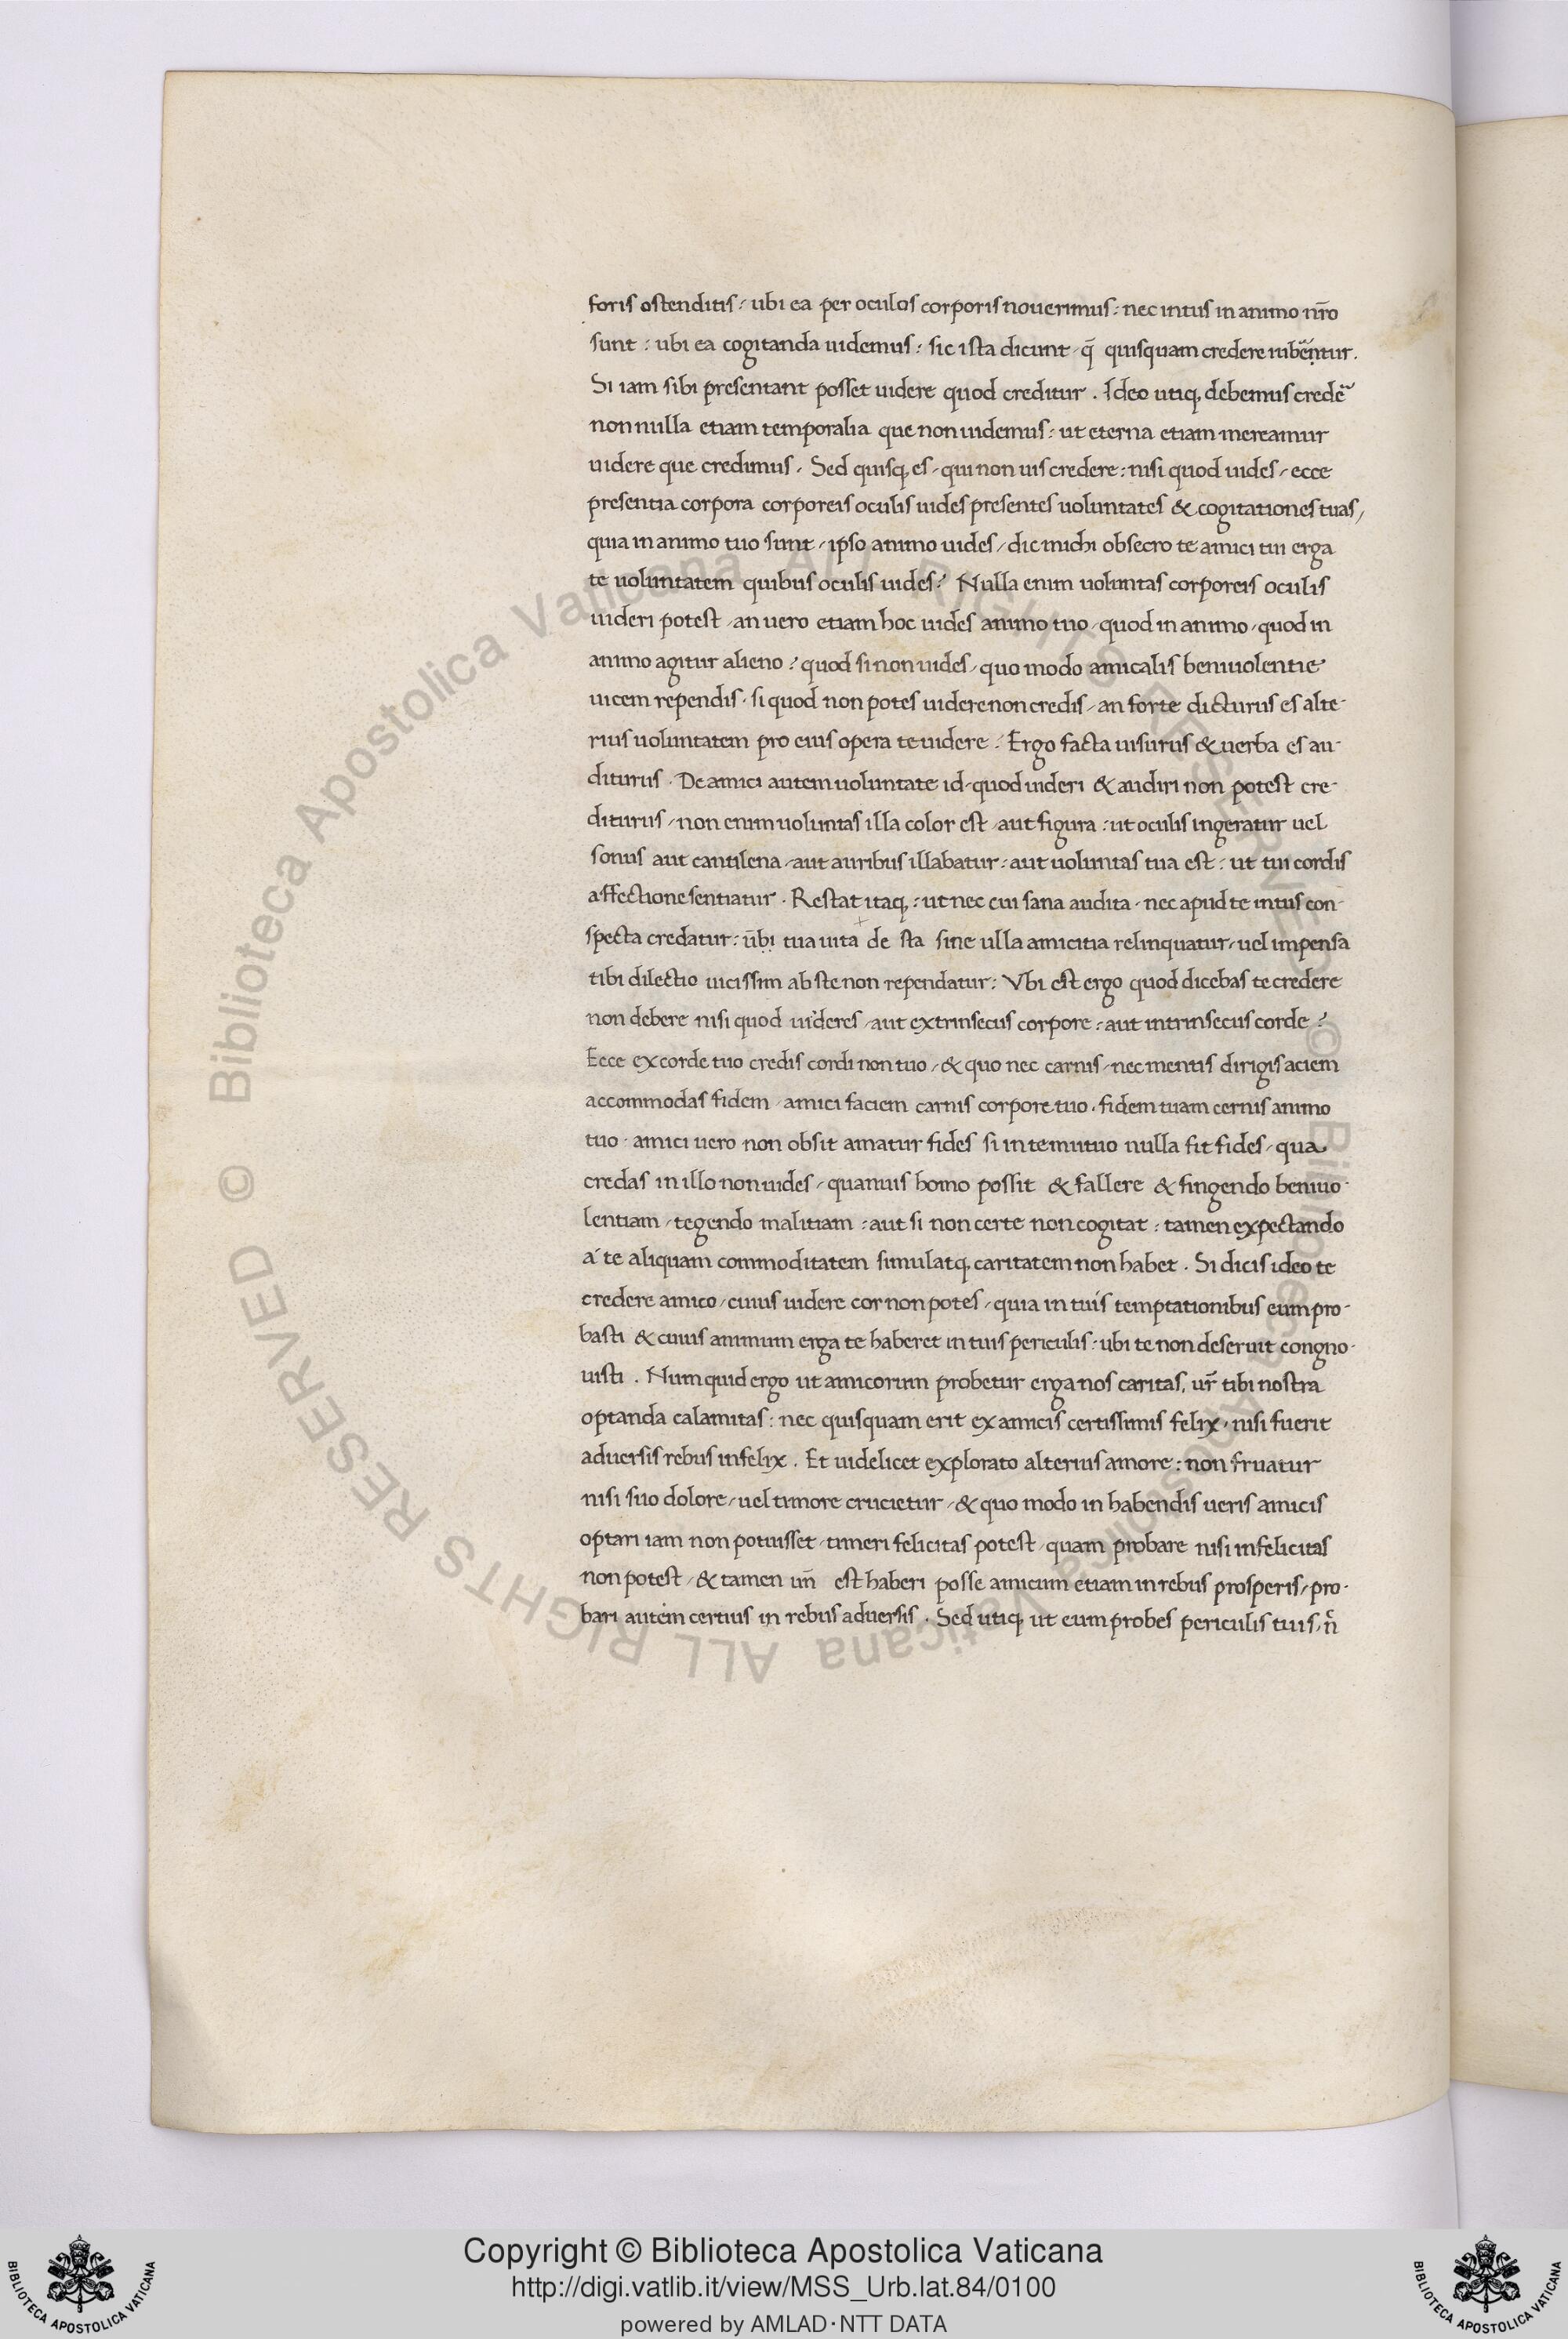 foris ostenditis: ubi ea per oculos corporis nouerimus: nec intus in animo nr̄o
sunt: ubi ea cogitanda uidemus: sic ista dicunt, q̄ quisquam credere iubentur.
Si iam sibi presentant posset uidere quod creditur. Ideo utiq, debemus crede᷑
non nulla etiam temporalia que non uidemus: ut eterna etiam mereamur
uidere que credimus. Sed quisq, es, qui non uis credere: nisi quod uides, ecce
presentia corpora corporeis oculis uides presentes uoluntates & cogitationes tuas,
quia in animo tuo sunt, ipso animo uides, dic michi obsecro te amici tui erga
te uoluntatem quibus oculis uides? Nulla enim uoluntas corporeis oculis
uideri potest, an uero etiam hoc uides animo tuo, quod in animo, quod in
animo agitur alieno? quod si non uides, quo modo amicalis beniuolentie
uicem rependis, si quod non potes uidere non credis, an forte dicturus es alte-
rius uoluntatem pro eius opera te uidere? Ergo facta uisurus & uerba es au-
diturus. De amici autem uoluntate id, quod uideri & audiri non potest cre-
diturus, non enim uoluntas illa color est, aut figura: ut oculis ingeratur uel
sonus aut cantilena, aut auribus illabatur: aut uoluntas tua est: ut tui cordis
affectione sentiatur. Restat itaq,: ut nec cui sana audita, nec apud te intus con-
specta credatur: ūbi tua uita de sta sine ulla amicitia relinquatur, uel impensa
tibi dilectio uicissim abste non rependatur: Vbi est ergo quod dicebas te credere
non debere nisi quod uideres, aut extrinsecus corpore: aut intrinsecus corde?
Ecce ex corde tuo credis cordi non tuo, & quo nec carnis, nec mentis dirigis aciem
accommodas fidem, amici faciem carnis corpore tuo, fidem tuam cernis animo
tuo. amici uero non obsit amatur fides si in te mutuo nulla fit fides, qua
credas in illo non uides, quamuis homo possit & fallere & fingendo beniuo-
lentiam, tegendo malitiam: aut si non certe non cogitat: tamen expectando
a te aliquam commoditatem simulatq, caritatem non habet. Si dicis ideo te
credere amico, cuius uidere cor non potes, quia in tuis temptationibus eum pro-
basti & cuius animum erga te haberet in tuis periculis: ubi te non deseruit congno-
uisti. Num quid ergo ut amicorum probetur erga nos caritas, ur̄ tibi nostra
optanda calamitas: nec quisquam erit ex amicis certissimis felix, nisi fuerit
aduersis rebus infelix. Et uidelicet explorato alterius amore: non fruatur
nisi suo dolore, uel timore crucietur, & quo modo in habendis ueris amicis
optari iam non potuisset, timeri felicitas potest, quam probare nisi infelicitas
non potest, & tamen un̄ est haberi posse amicum etiam in rebus prosperis, pro-
bari autem certius in rebus aduersis. Sed utiq, ut eum probes periculis tuis, n̄
© Biblioteca Apostolica Vaticana ALL RIGHTS RESERVED
© Biblioteca Apostolica Vaticana ALL RIGHTS RESERVED
Copyright © Biblioteca Apostolica Vaticana
http://digi.vatlib.it/view/MSS_Urb.lat.84/0100
powered by AMLAD·NTT DATA
BIBLIOTECA APOSTOLICA VATICANA
BIBLIOTECA APOSTOLICA VATICANA